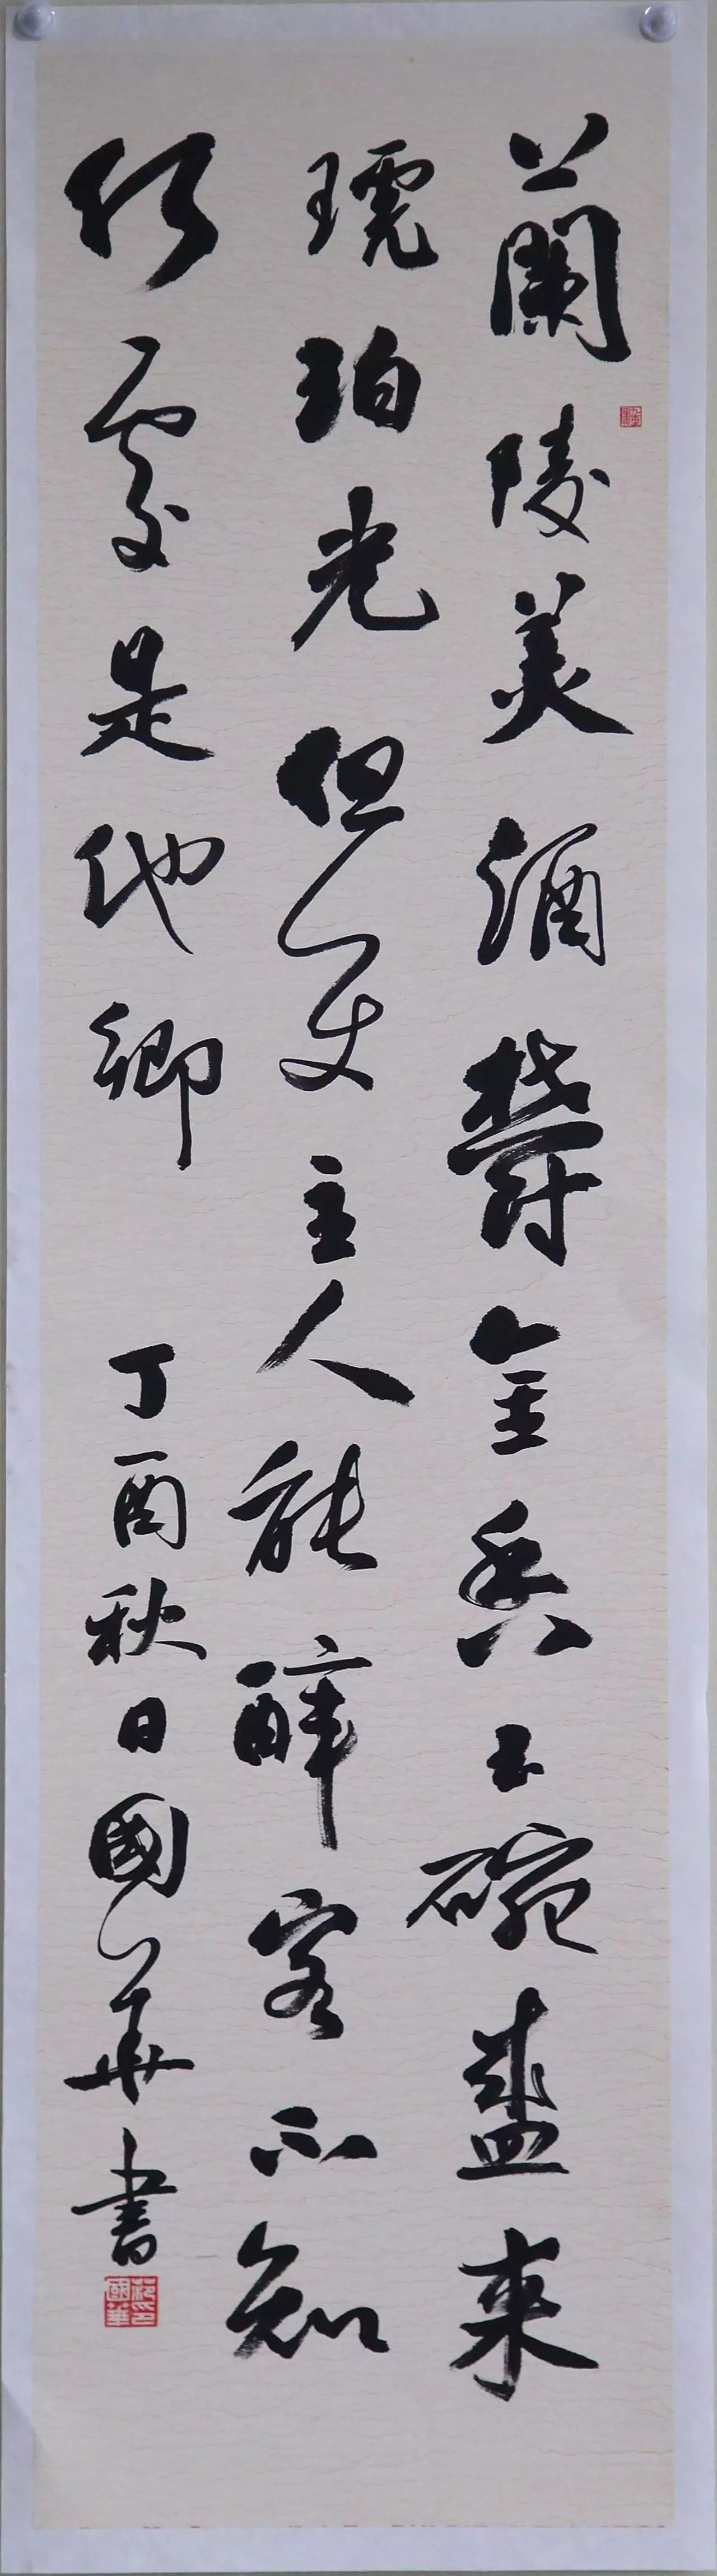 蘭陵美酒鬱金香玉碗盛来
琥珀光但使主人能醉客不知
何處是他鄉 丁酉秋日國華書
國華